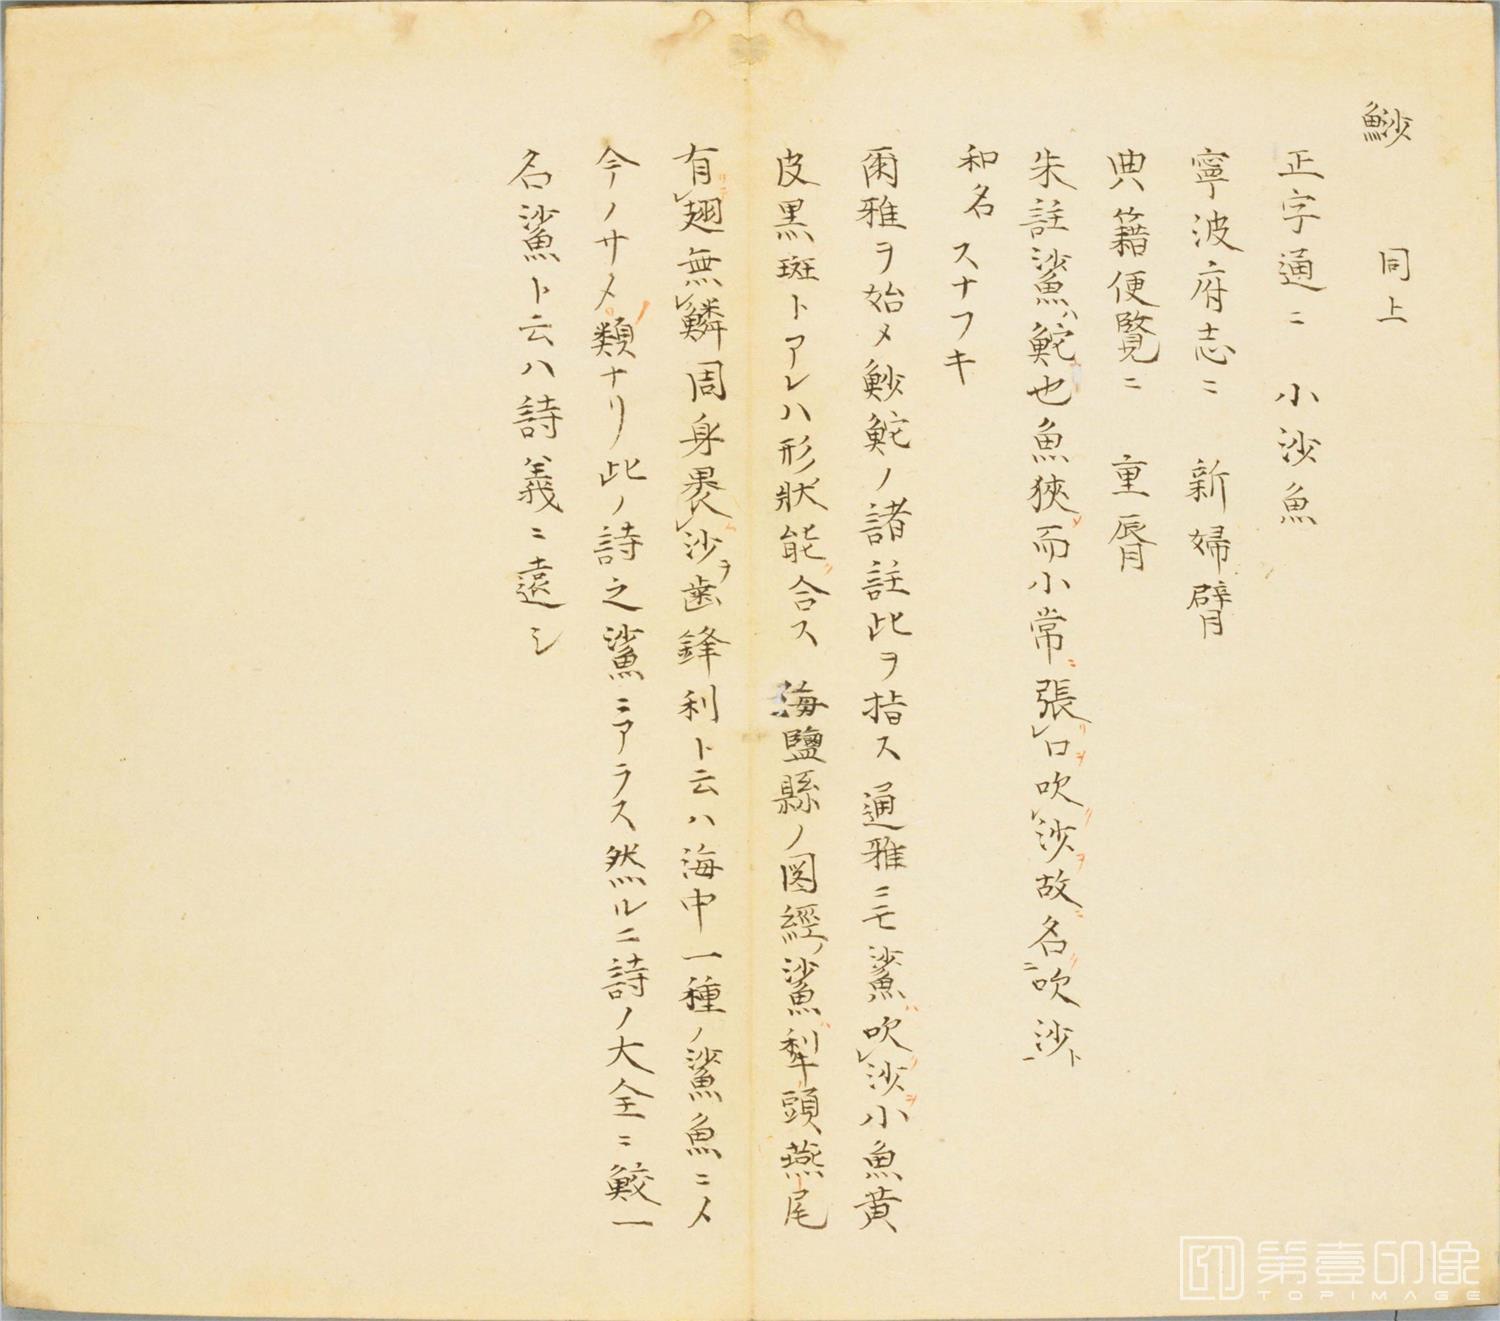 魦　同上
正字通ニ　小沙魚
寧波府志ニ　新婦臂
典籍便覧ニ　重唇
朱註鯊ハ鮀也魚狹而小常張口吹沙故名吹沙
和名　スナフキ
爾雅ヲ始メ魦鮀ノ諸註此ヲ指ス通雅ニモ鯊吹沙小魚黄
皮黒斑トアレハ形状能合ス　海鹽縣ノ図經ノ鯊犁頭燕尾
有翅無鱗周身畏沙歯鋒利ト云ハ海中一種ノ鯊魚ニメ
今ノサメ類ナリ此ノ詩之鯊ニアラス然ルニ詩ノ大全ニ鮫一
名鯊ト云ハ詩義ニ遠シ
第壹印像
TOPIMAGE